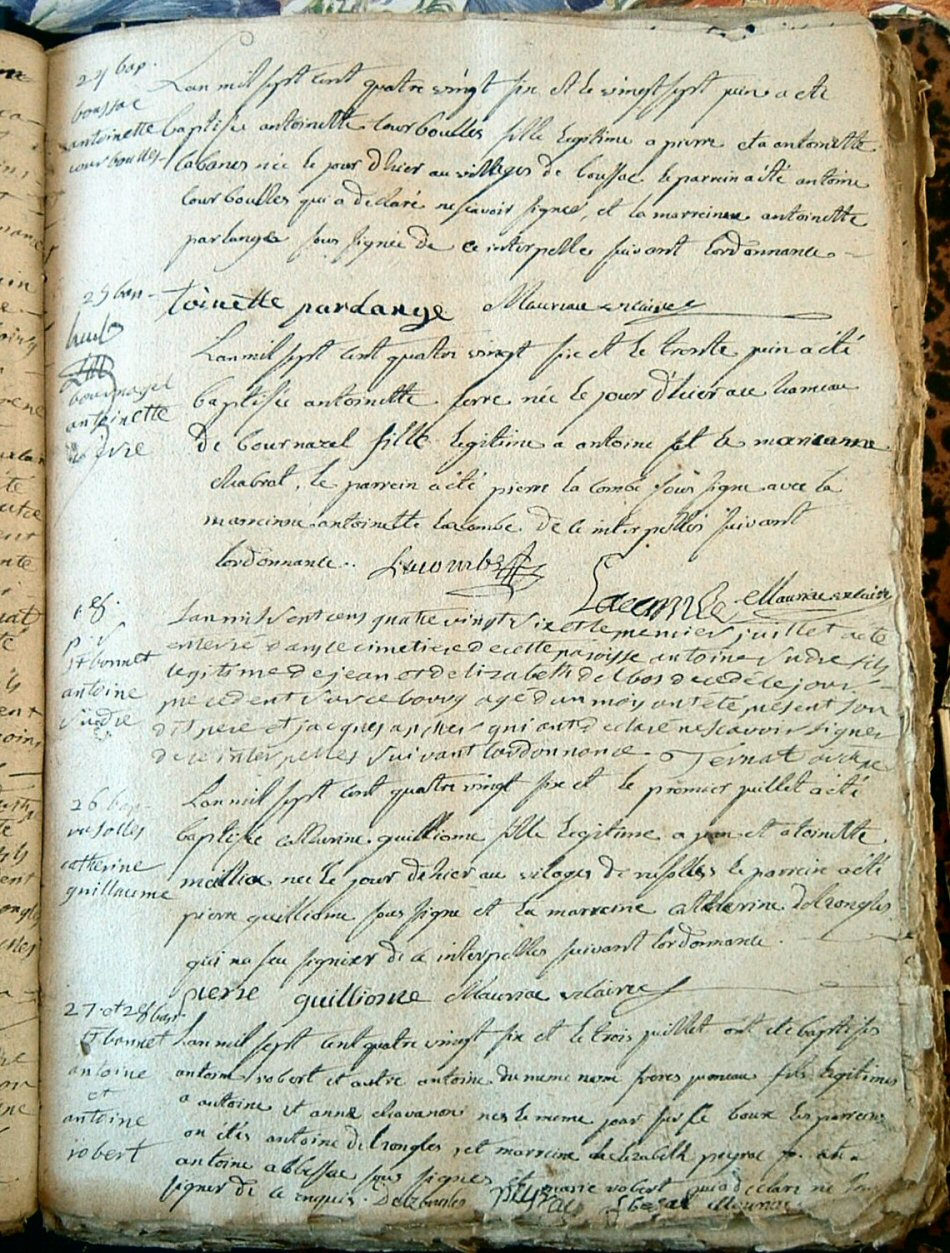 24 bap.
boussac
antoinette
courboulles
Lan mil sept cent quatre vingt six et le vingt sept juin a ete
baptisée antoinette courboulles fille legitime a pierre et a antoinette
cabanes née le jour d'hier au villages de boussac le parrein a été antoine
courboulles qui a declaré ne scavoir signer, et la marreine antoinette
pardange sous signée de ce interpelles suivant lordonnance
25 bap
bournazel
antoinette
serre
toinette pardange Mauriac vicaire
Lan mil sept cent quatre vingt six et le trente juin a été
baptisée antoinette serre née le jour d'hier au hameau
de bournazel fille legitime a antoine et a marianne
chabrat, le parrein a été pierre la combe sous signe avec la
marreinne antoinette lacombe de ce interpelles suivant
lordonnance.. Lacombe
Lacombe Mauriac vicaire
st bonnet
antoine
sudre
Lan mil sept cens quatre vingt six et le premier juillet a ete
enterré dans le cimetiere de cette paroisse antoine sudre fils
legitime de jean et de lizabeth delbos decedé le jour
precedent sur ce bourg agé d'un mois ont été présent son
dit pere et jacques archer qui ont declaré ne scavoir signer
de ce interpelles suivant lordonnance. Ternat
26 bap
rusolles
catherine
guillaume
Lan mil sept cent quatre vingt six et le premier juillet a été
baptisée catherine guillione fille legitime a jean et atoinette
née le jour d'hier au vilages de rusolles le parrein a été
pierre guillione sous signe et la marreine catherine delrongles
qui na seu signer de ce interpelles suivant lordonnance.
pierre guillionne Mauriac vicaire
27 et 28 bap
st bonnet
antoine
et
antoine
robert
Lan mil sept cent quatre vingt six et le trois juillet ont ete baptises
antoine robert et autre antoine du meme nom freres jumeau fils legitimes
a antoine et anne chavanon nes le meme jour sur le bourg les parreins
on étés antoine delrongles et marreine elizabeth peyrac
antoine albessac sous signes et marie robert qui a declare ne
signer de ce enquis. Delrongles peyrac Mauriac